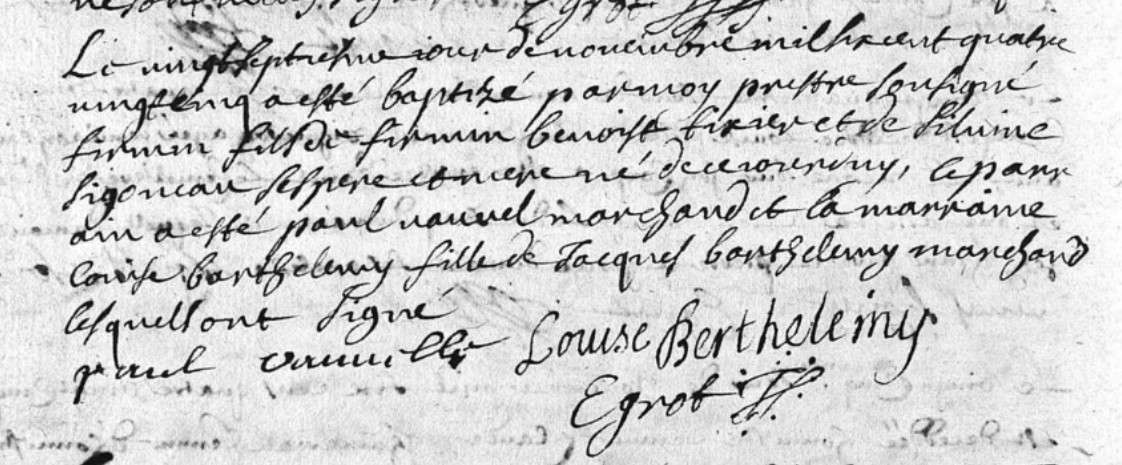 Egrot
Le vingtseptiesme iour de novembre mil six cent quatre
vingt cinq a esté baptizé par moy prestre soussigné
firmin fils de firmin benoist tixier et de silvine
sigoneau ses pere et mere né de ce iourdhuy, le parr
ain a esté paul marchand et la marraine
louise barthelemy fille de Jacques barthelemy marchand
lesquels ont signé
paul Louise Berthelemy
Egrot